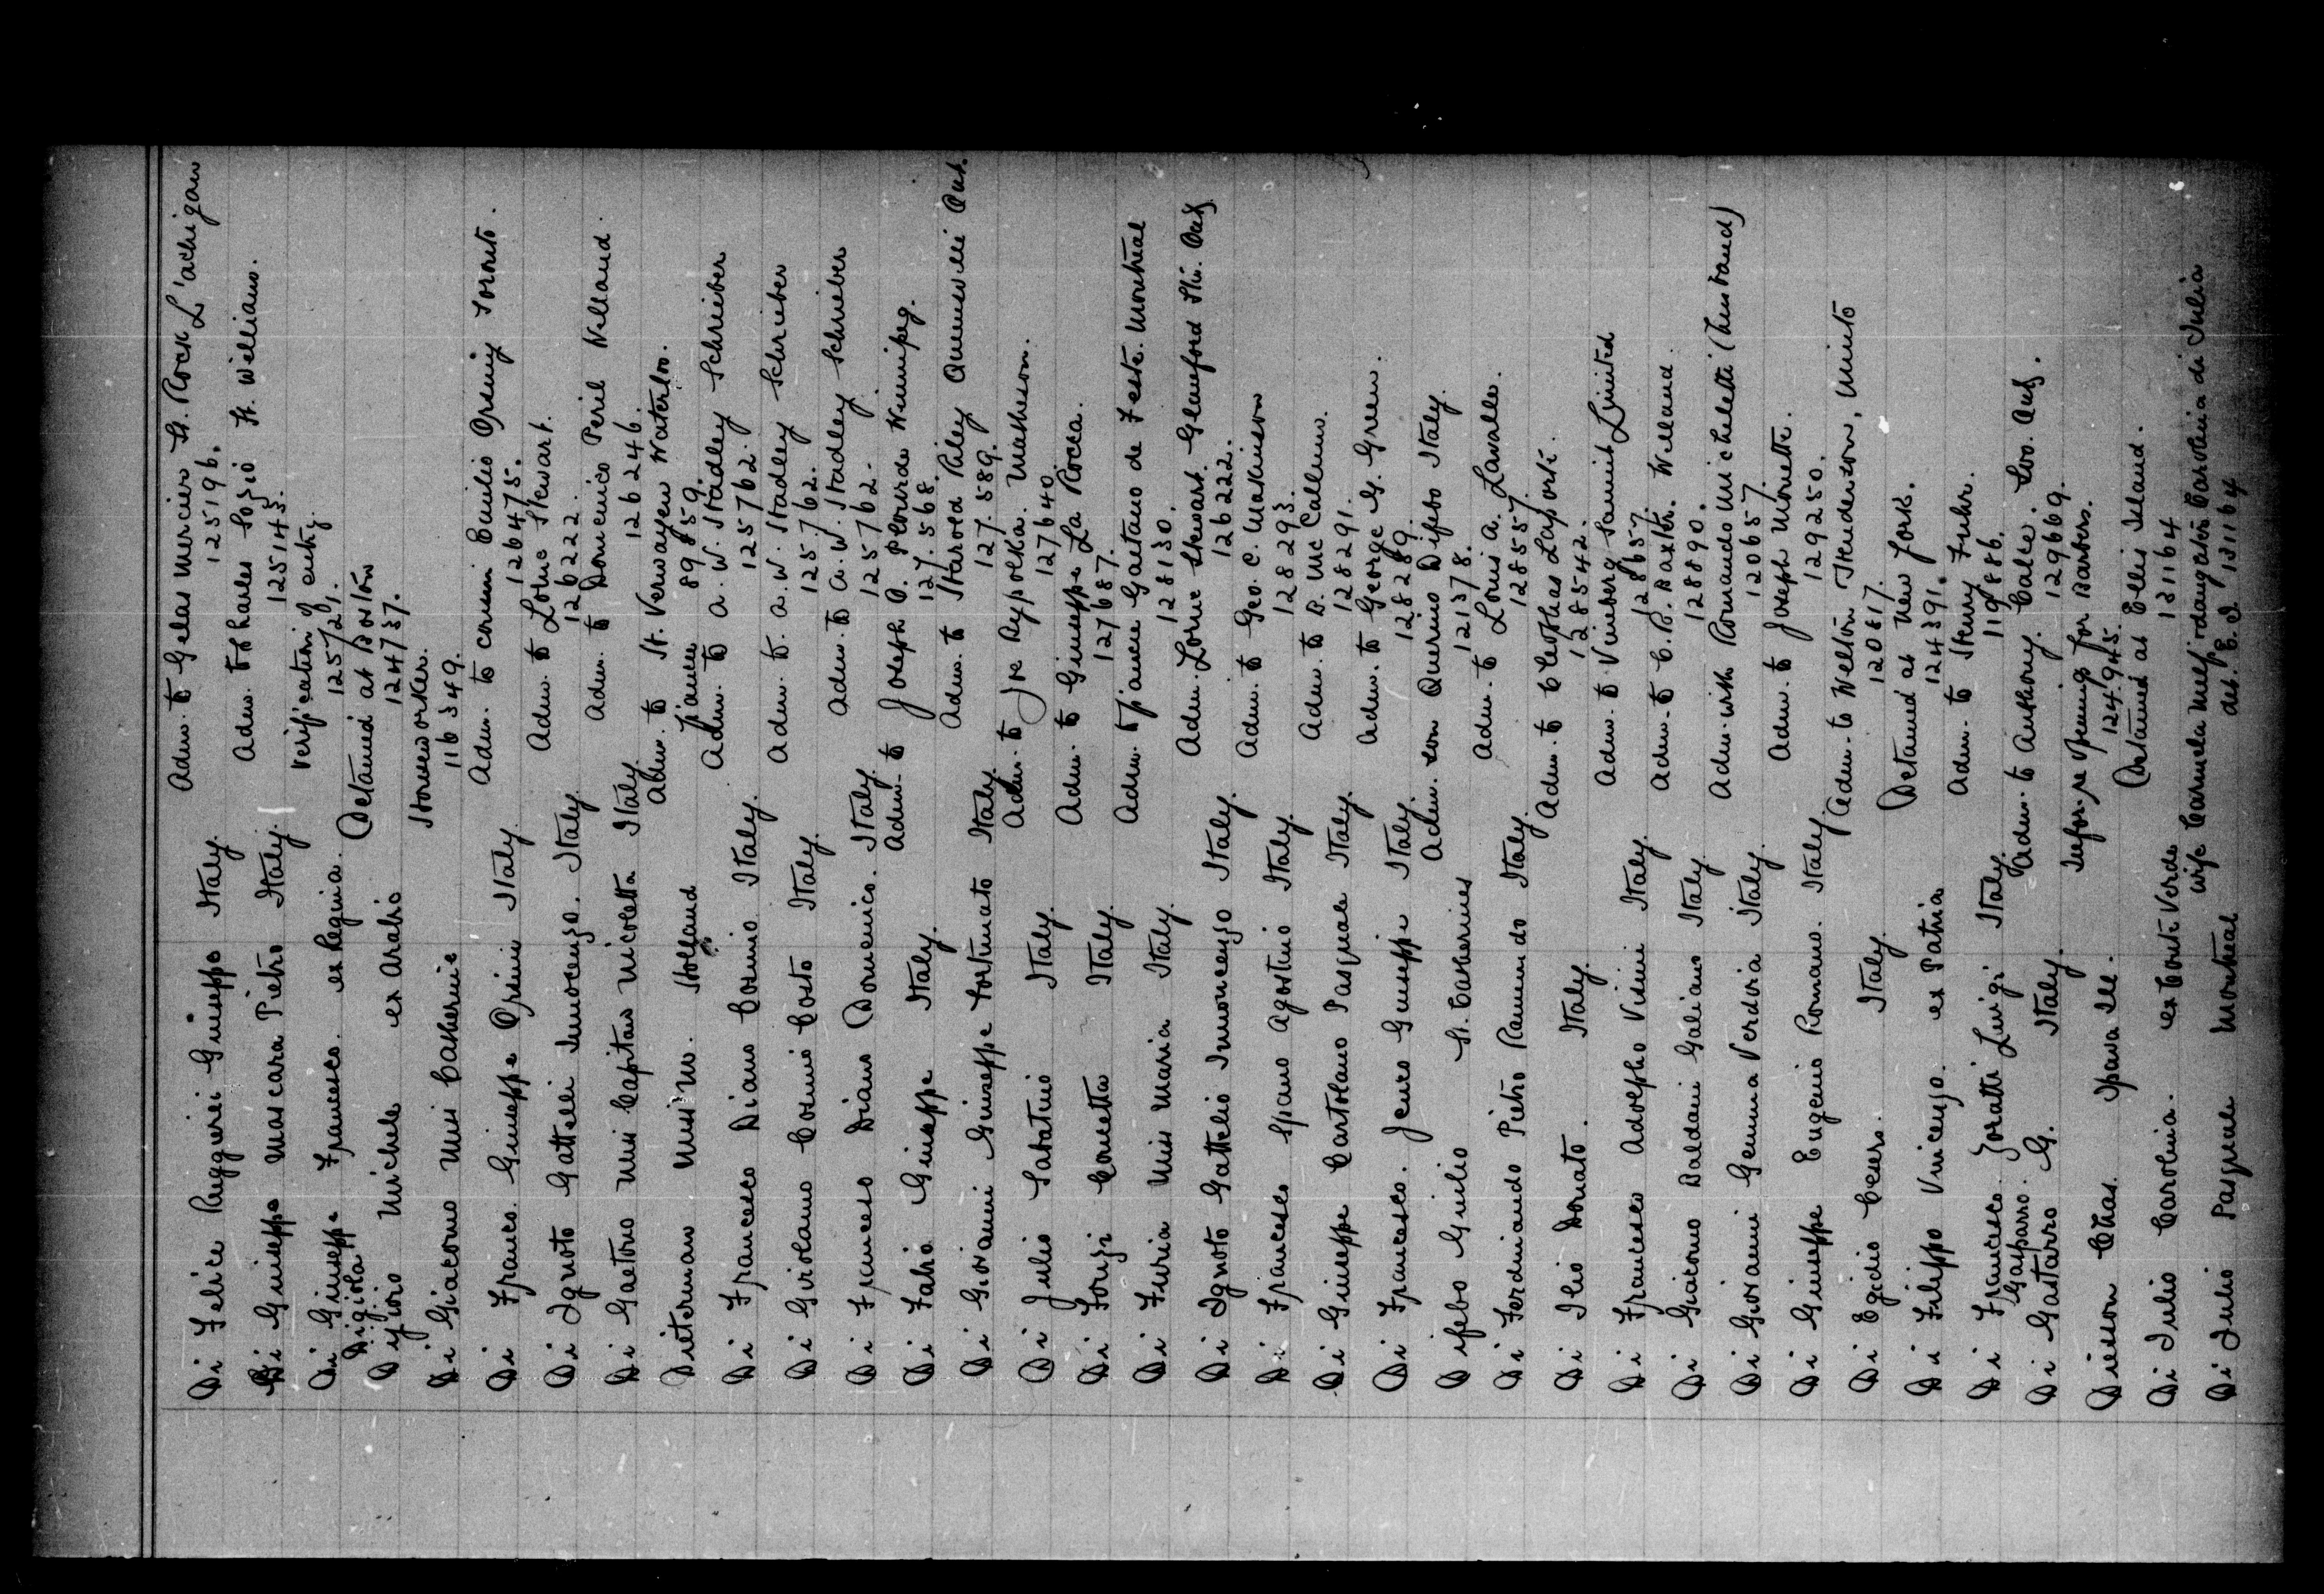 Di Felice Ruggieri Giuseppe Italy. Adm. to Gelas Mercier St. Rock L'achigan
125196.
Di Giuseppe Mascara Pietro Italy. Adm. to Charles Sozio Ft. William.
125143.
Di Giuseppe Francesco. ex Regina. Verification of entry.
Digiola 125721.
Di Iorio Michele ex Arabic Detained at Boston
124737.
Di Giacomo Miss Catherine Houseworker.
116349.
Di Franco. Giuseppe Orsini Italy. Adm. to cousin Emilio Orsini Toronto.
126475.
Di Ignoto Gattelli Innocenzo. Italy. Adm. to Lorne Stewart.
126222.
Di Gaetono Miss Capitan Nicoletta Italy. Adm. to Domenico Peril Welland.
126246.
Dieterman Miss M. Holland Adm. to H. Verwayen Waterloo.
fiancee 89859.
Di Francesco Diano Cosmio Italy. Adm. to A. W. Stadley Schrieber
125762.
Di Girolamo Cosmi Costo Italy. Adm. to. A. W. Stadley Schrieber
125762.
Di Francesco Diano Domenico. Italy. Adm. to A. W. Stadley Schrieber
125762.
Di Fabio Giuseppe Italy. Adm. to Joseph O. Plourde Winnipeg.
127568.
Di Giovanni Giuseppe Fortunato Italy. Adm. to Harold Riley Ont.
127589.
Di Julio Sabatino Italy. Adm. to Joe Matheson.
127640
Di Fonzi Concetta Italy. Adm. to Giuseppe La Rocca.
127687.
Di Furia Miss Maria Italy. Adm. to fiance Gaetano de Feste. Montreal
128130.
Di Ignoto Gattelio Innoncenzo Italy. Adm. Lorne Stewart. Glanford Stn. Ont.
126222.
Di Francesco Spano Agostino Italy. Adm. to Geo. C. Makinson
128293.
Di Giuseppe Cartolano Pasquale Italy. Adm. to D. McCallum.
128291.
Di Francesco. Jenco Giuseppe Italy. Adm. to George G. Green.
128289.
Difebo Giulio St. Catherines Adm. son Quermo Difebo Italy.
121378.
Di Ferdinando Pietro Raimondo Italy. Adm. to Louis A. Lavalle.
128557.
Di Ilio Donato. Italy. Adm. to Cleophas Laporte.
128542.
Di Francesco Adolpho Vicini Italy. Adm. to Vineberg Samuel Limited
128657.
Di Giacomo Baldani Galiano Italy Adm. to C. B. Baxter. Welland.
128890.
Di Giovanni Gemma Verdoia Italy. Adm. with Romando Micheletti (husband)
120657.
Di Giuseppe Eugenio Romano. Italy. Adm. to Joseph Monette.
129250.
Di Egidio Cesers. Italy. Adm. to Welton Henderson, Minto
120817.
Di Filippo Vincenzo. ex Patria Detained at New York.
124391.
Di Francesco. Zoratti Luigi Italy. Adm. to Henry Fuhr.
Gasparro. 119886.
Di Gastarro G. Italy. Adm. to Anthony. Calce. Soo. Ont.
129669.
Diesson Chas. Ipava Ill. Infor. re openings for Barbers.
124945.
Di Iulio Carolina. ex Conte Verde Detained at Ellis Island.
131164
Di Iulio Pasquale Montreal wife Carmela Melf. daughter Carolina di Iulia
det. E. I. 131164